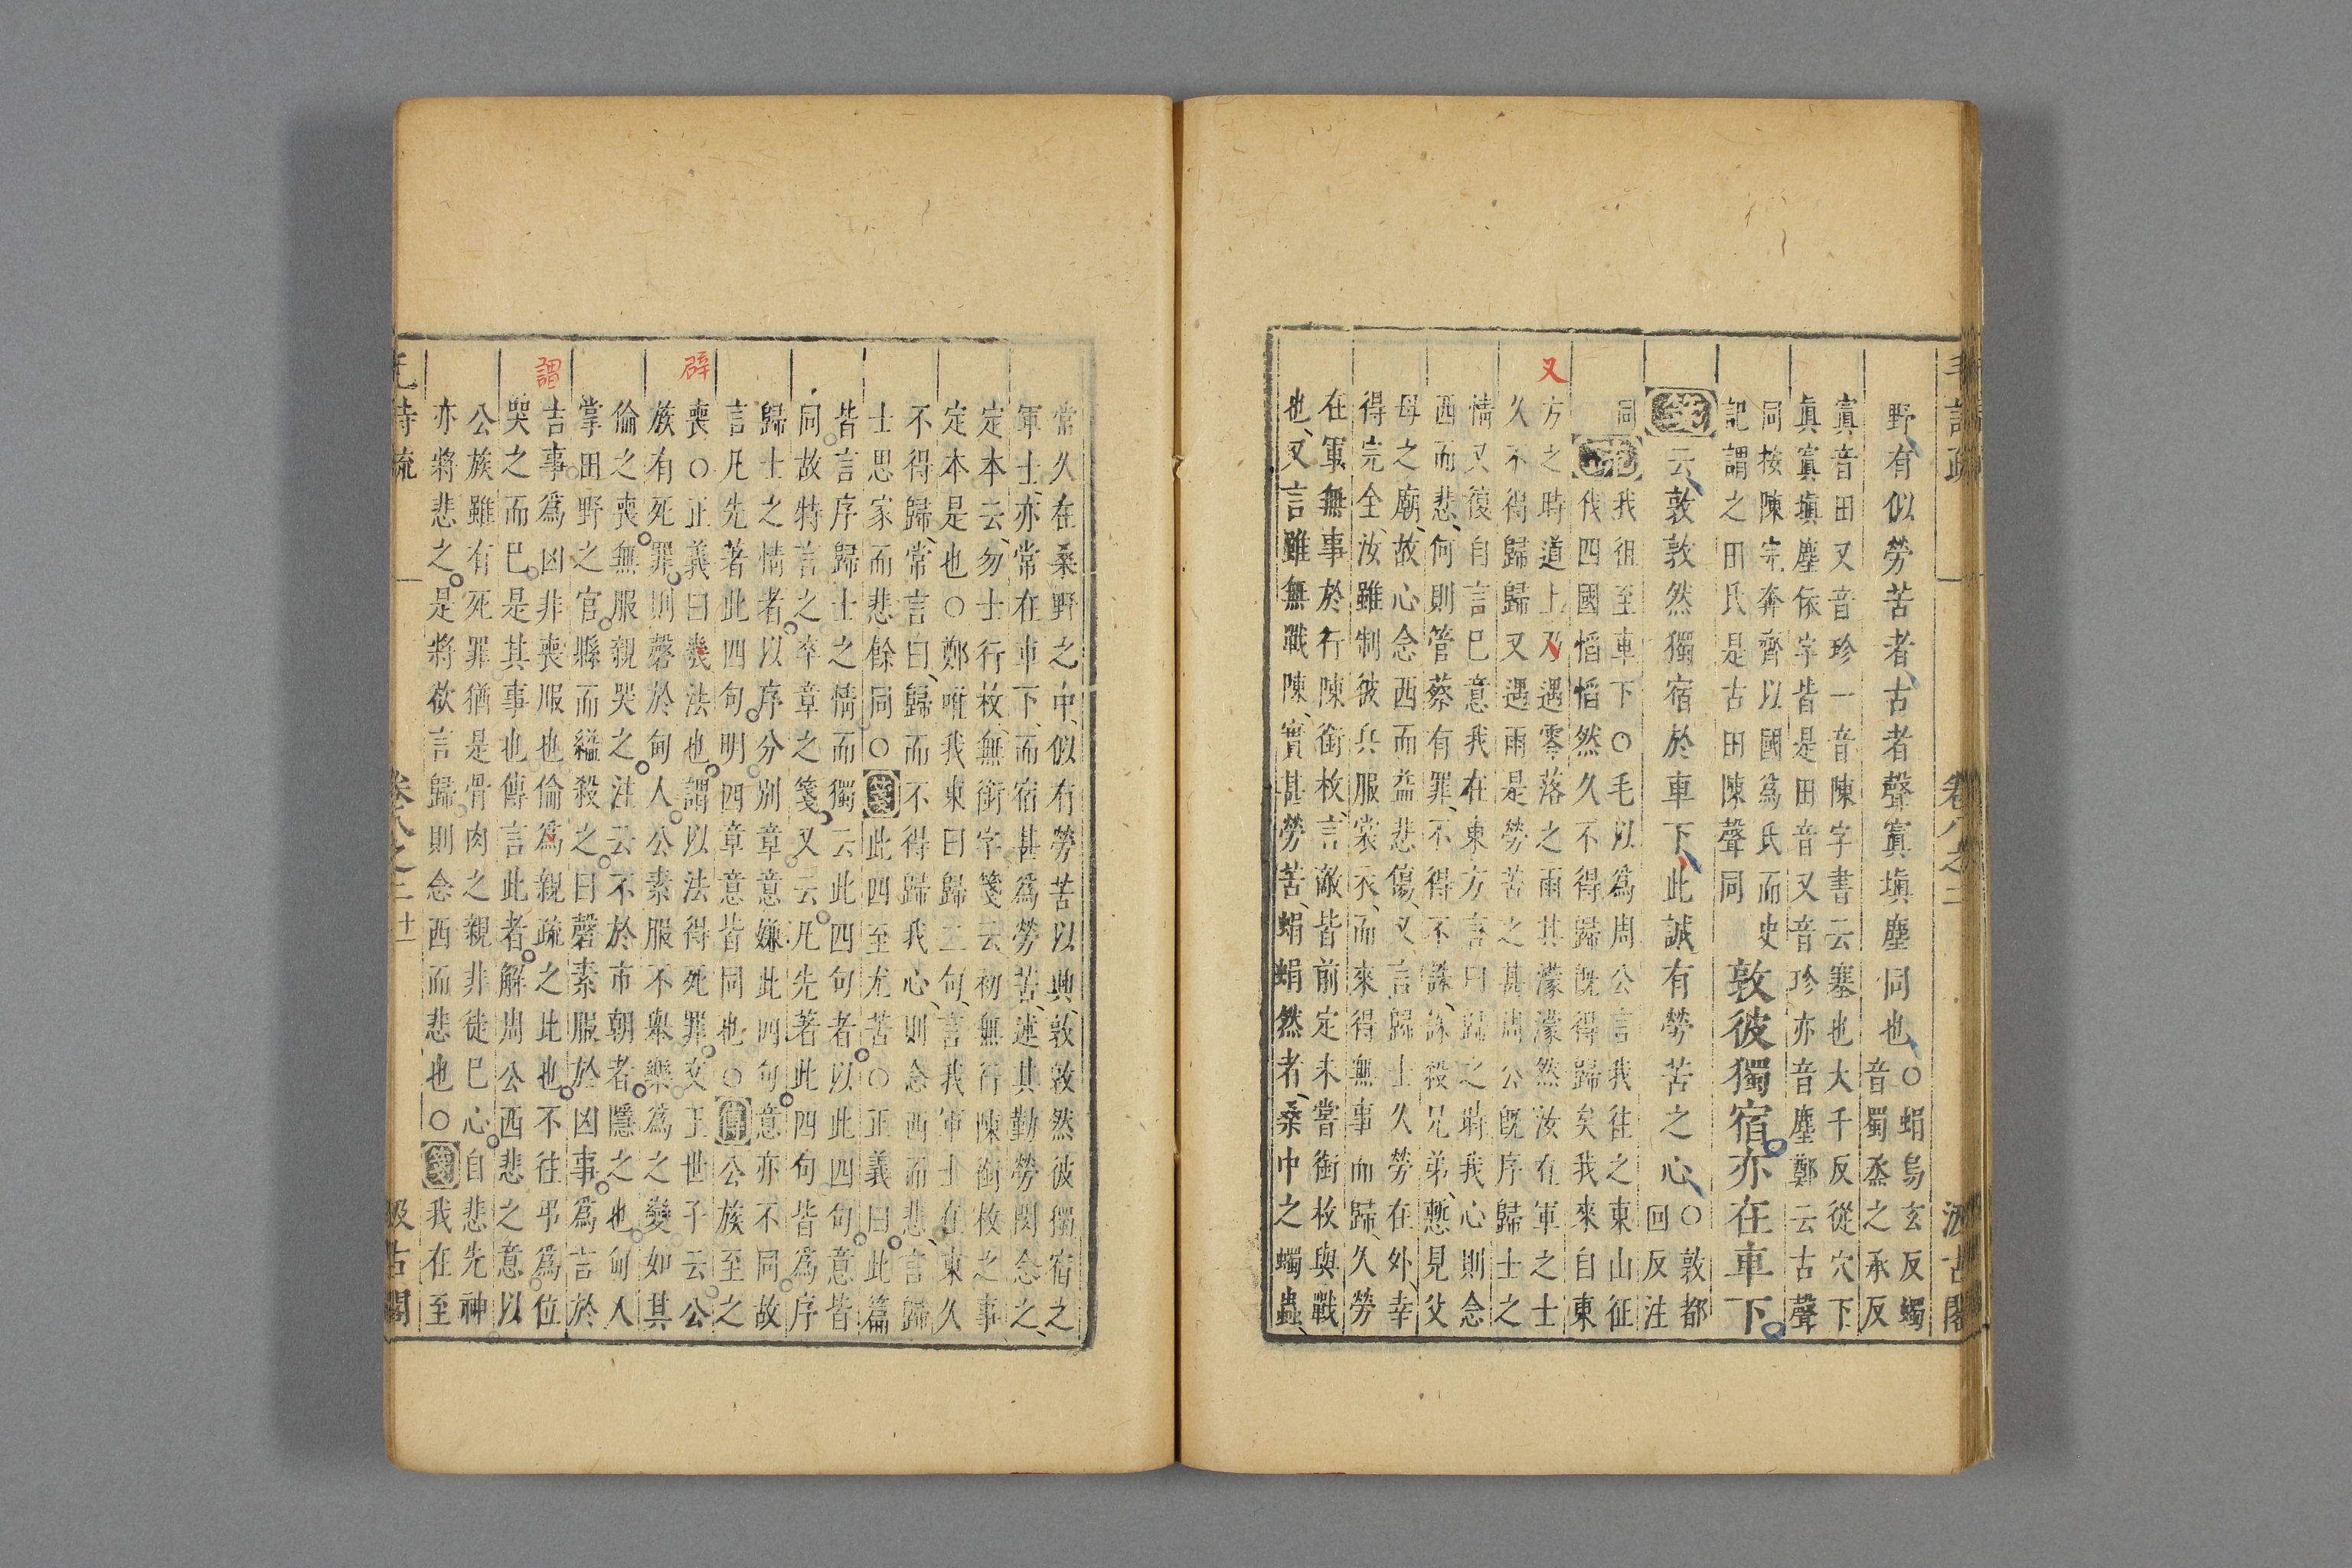 毛詩疏 卷八之二 汲古閣
野有似勞苦者古者聲窴塡塵同也○蜎烏玄反蠋
音蜀烝之承反
窴音田又音珍一音陳字書云塞也大千反從穴下
眞窴塡塵依字皆是田音又音珍亦音塵鄭云古聲
同按陳完奔齊以國爲氏而史
記謂之田氏是古田陳聲同
敦彼獨宿亦在車下
箋云敦敦然獨宿於車下此誠有勞苦之心○敦都
回反注
同
疏我徂至車下○毛以爲周公言我往之東山征
伐四國慆慆然久不得歸旣得歸矣我來自東
又
方之時道上乃遇零落之雨其濛濛然汝在軍之士
久不得歸歸又遇雨是勞苦之甚周公旣序歸士之
情又復自言已意我在東方言曰歸之時我心則念
西而悲何則管蔡有罪不得不誅誅殺兄弟慙見父
母之廟故心念西而益悲傷又言歸士久勞在外幸
得完全汝雖制彼兵服裳衣而來得無事而歸久勞
在軍無事於行陳銜枚言敵皆前定未嘗銜枚與戰
也又言雖無戰陳實甚勞苦蜎蜎然者桑中之蠋蟲
常久在桑野之中似有勞苦以興敦敦然彼獨宿之
軍士亦常在車下而宿甚爲勞苦述其勤勞閔念之
定本云勿士行枚無銜字箋云初無行陳銜枚之事
定本是也○鄭唯我東曰歸二句言我軍士在東久
不得歸常言曰歸而不得歸我心則念西而悲言歸
士思家而悲餘同○箋此四至尤苦○正義曰此篇
皆言序歸士之情而獨云此四句者以此四句意皆
同故特言之卒章之箋又云凡先著此四句皆爲序
歸士之情者以序分別章意嫌此四句意亦不同故
言凡先著此四句明四章意皆同也○傳公族至之
辟
喪○正義曰幾法也謂以法得死罪文王世子云公
族有死罪則磬於甸人公素服不舉樂爲之變如其
倫之喪無服親哭之注云不於市朝者隱之也甸人
掌田野之官縣而縊殺之曰磬素服於凶事爲吉於
謂
吉事爲凶非喪服也倫爲親疏之比也不往弔爲位
哭之而巳是其事也傳言此者解周公西悲之意以
公族雖有死罪猶是骨肉之親非徒巳心自悲先神
亦將悲之是將欲言歸則念西而悲也○箋我在至
毛詩疏 卷八之二 十一 汲古閣